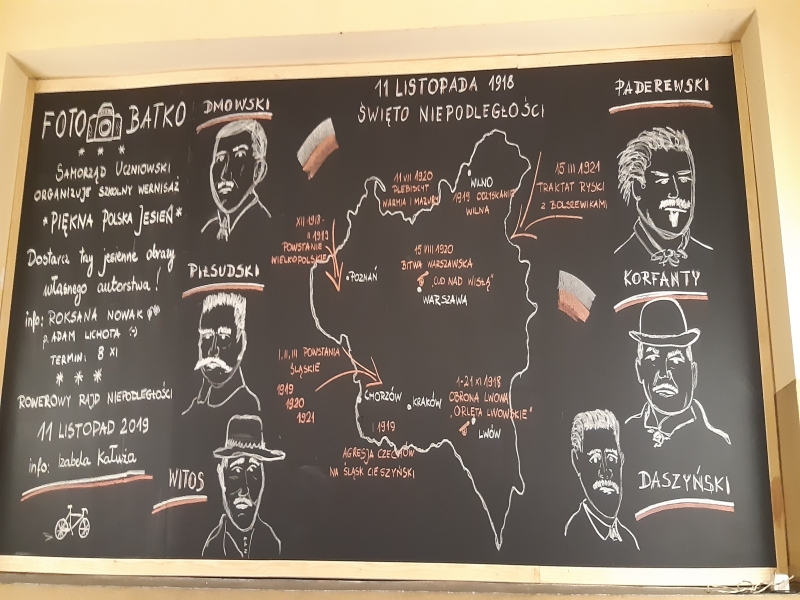 FOTO BATKO
* * *
SAMORZĄD UCZNIOWSKI
ORGANIZUJE SZKOLNY WERNISAŻ
*PIĘKNA POLSKA JESIEŃ*
Dostarcz trzy jesienne obrazy
własnego autorstwa!
info: ROKSANA NOWAK
p. ADAM LICHOTA :-)
TERMIN: 8 XI
* * *
ROWEROWY RAJD NIEPODLEGŁOŚCI
11 LISTOPAD 2019
info: Izabela Kałuża
DMOWSKI
PIŁSUDSKI
WITOS
11 LISTOPADA 1918
ŚWIĘTO NIEPODLEGŁOŚCI
11 VII 1920
PLEBISCYT
WARMIA I MAZURY
WILNO
1919 ODZYSKANIE
WILNA
15 III 1921
TRAKTAT RYSKI
z BOLSZEWIKAMI
XII 1918-
II 1919
POWSTANIE
WIELKOPOLSKIE
POZNAŃ
15 VIII 1920
BITWA WARSZAWSKA
"CUD NAD WISŁĄ"
WARSZAWA
I, II, III POWSTANIA
ŚLĄSKIE
1919
1920
1921
CHORZÓW
KRAKÓW
1-21 XI 1918
OBRONA LWOWA
"ORLĘTA LWOWSKIE"
LWÓW
I 1919
AGRESJA CZECHÓW
NA ŚLĄSK CIESZYŃSKI
PADEREWSKI
KORFANTY
DASZYŃSKI